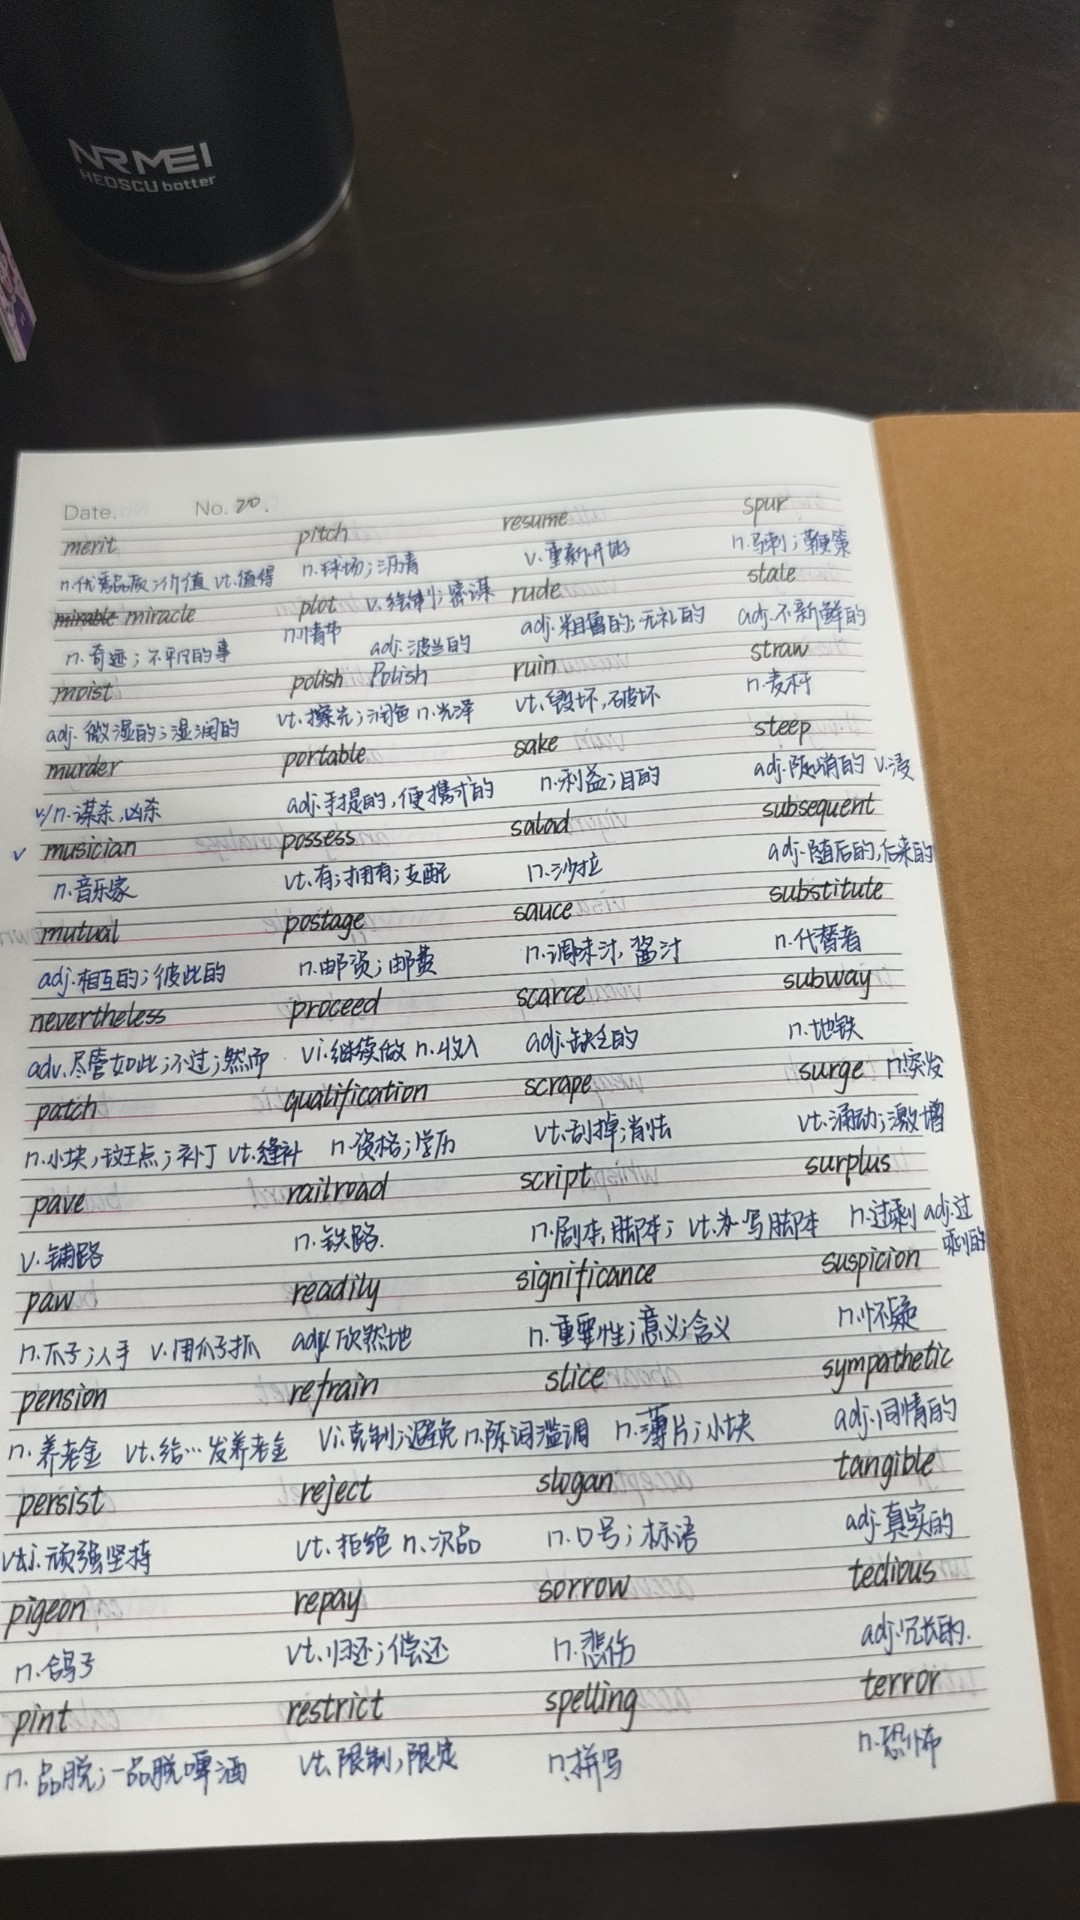 NRMEI
HEOSCU botter
Date. No. 20.
merit pitch resume spur
n.优秀品质;价值 vt.值得 n.球场;沥青 v.重新开始 n.马刺;鞭策
mirable miracle plot v.绘制;密谋 rude stale
n.奇迹;不平凡的事 n.情节 adj.波兰的 adj.粗鲁的;无礼的 adj.不新鲜的
moist polish Polish ruin straw
adj.微湿的;湿润的 vt.擦光;润色 n.光泽 vt.毁坏,破坏 n.麦杆
murder portable sake steep
v/n.谋杀,凶杀 adj.手提的,便携式的 n.利益;目的 adj.陡峭的 v.浸
v musician possess salad subsequent
n.音乐家 vt.有;拥有;支配 n.沙拉 adj.随后的,后来的
mutual postage sauce substitute
adj.相互的;彼此的 n.邮资;邮费 n.调味汁,酱汁 n.代替者
nevertheless proceed scarce subway
adv.尽管如此;不过;然而 vi.继续做 n.收入 adj.缺乏的 n.地铁
patch qualification scrape surge n.突发
n.小块;斑点;补丁 vt.缝补 n.资格;学历 vt.刮掉;消怯 vt.涌动;激增
pave railroad script surplus
v.铺路 n.铁路. n.剧本,脚本; vt.为…写脚本 n.过剩 adj.过剩的
paw readily significance suspicion
n.爪子;人手 v.用爪子抓 adv.欣然地 n.重要性;意义;含义 n.怀疑
pension refrain slice sympathetic
n.养老金 vt.给…发养老金 vi.克制;避免 n.陈词滥调 n.薄片;小块 adj.同情的
persist reject slogan tangible
vi.顽强坚持 vt.拒绝 n.次品 n.口号;标语 adj.真实的
pigeon repay sorrow tedious
n.鸽子 vt.归还;偿还 n.悲伤 adj.冗长的.
pint restrict spelling terror
n.品脱;一品脱啤酒 vt.限制,限定 n.拼写 n.恐怖